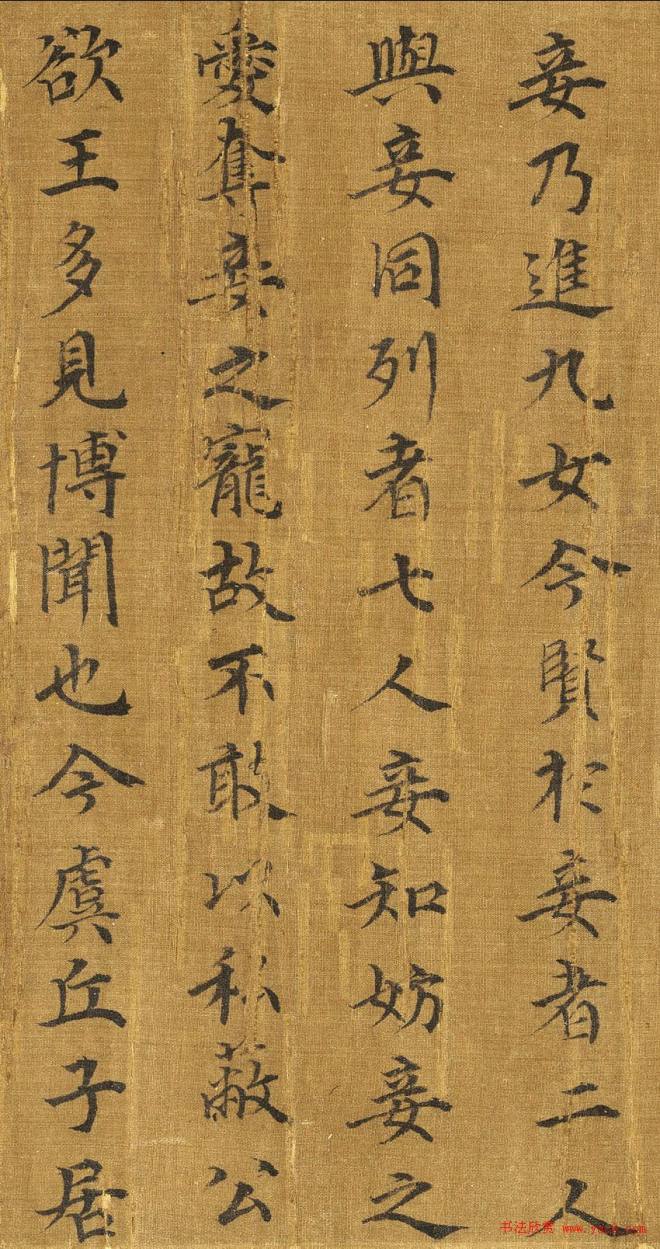 妾乃進九女今賢於妾者二人
與妾同列者七人妾知妨妾之
愛奪妾之寵故不敢以私蔽公
欲王多見博聞也今虞丘子居
书法欣赏 www.yac8.com